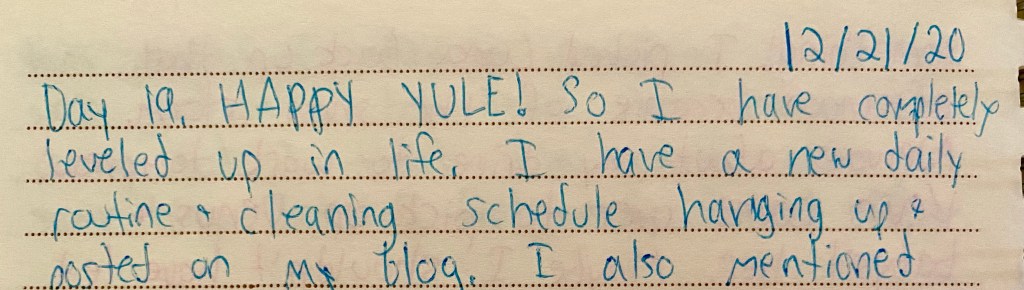 12/21/20
Day 19. HAPPY YULE! So I have completely
leveled up in life. I have a new daily
routine & cleaning schedule hanging up &
posted on my blog. I also mentioned